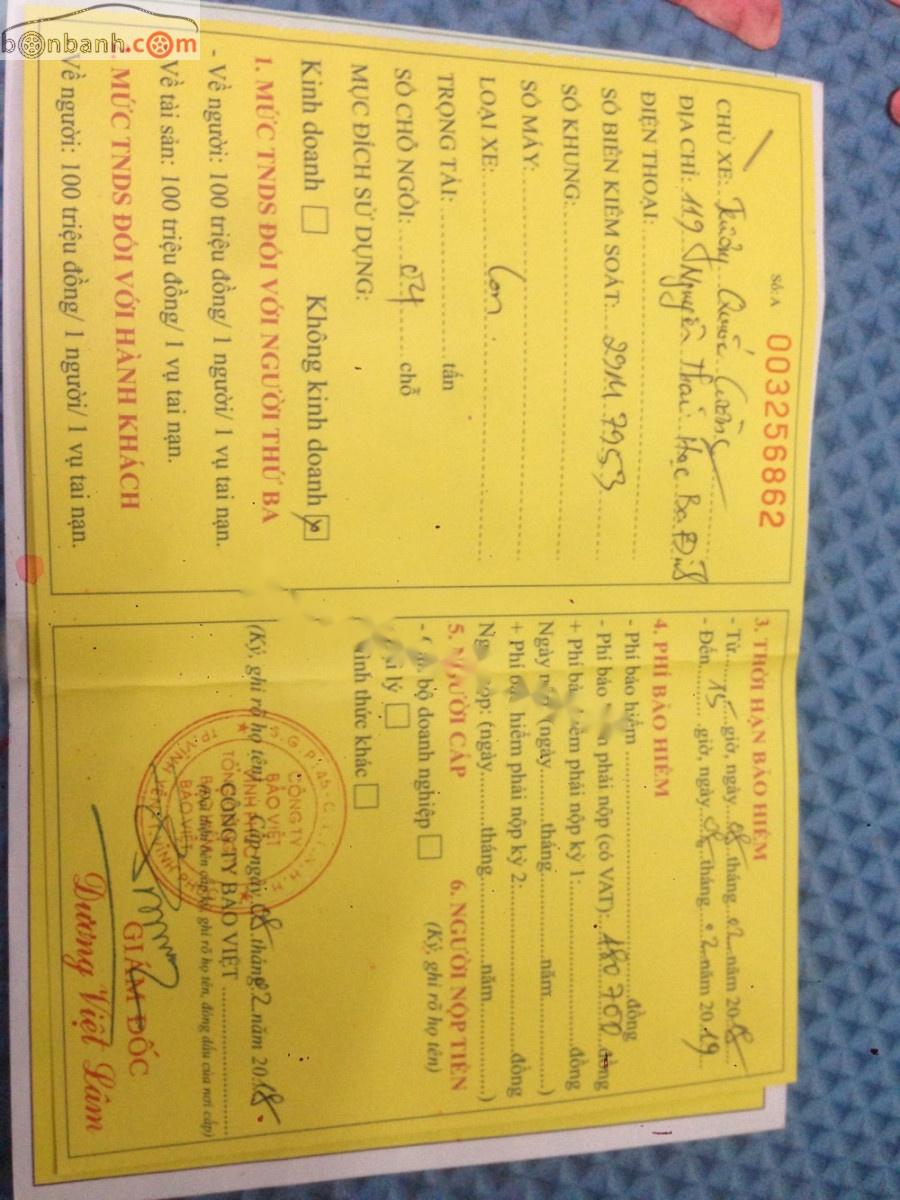 bonbanh.com
Số: A 003256862
CHỦ XE: Trương Quốc Cường
ĐỊA CHỈ: 119 Nguyễn Thái Học Ba Đình
ĐIỆN THOẠI:
SỐ BIỂN KIỂM SOÁT: 29M 7953
SỐ KHUNG:
SỐ MÁY:
LOẠI XE: Con
TRỌNG TẢI: tấn
SỐ CHỖ NGỒI: 04 chỗ
MỤC ĐÍCH SỬ DỤNG:
Kinh doanh Không kinh doanh
1. MỨC TNDS ĐỐI VỚI NGƯỜI THỨ BA
- Về người: 100 triệu đồng/ 1 người/ 1 vụ tai nạn.
Về tài sản: 100 triệu đồng/ 1 vụ tai nạn.
MỨC TNDS ĐỐI VỚI HÀNH KHÁCH
Về người: 100 triệu đồng/ 1 người/ 1 vụ tai nạn.
3. THỜI HẠN BẢO HIỂM
- Từ giờ, ngày 08 tháng 02 năm 2018
- Đến 15 giờ, ngày 08 tháng 02 năm 2019
4. PHÍ BẢO HIỂM
- Phí bảo hiểm đồng
- Phí bảo phải nộp (có VAT): 480 700 đồng
+ Phí phải nộp kỳ 1: đồng
Ngày (ngày tháng năm )
+ Phí hiểm phải nộp kỳ 2: đồng
(ngày tháng năm )
5. NGƯỜI CẤP 6. NGƯỜI NỘP TIỀN
bộ doanh nghiệp (Ký, ghi rõ họ tên)
lý
thức khác
(Ký, ghi rõ họ tên) Cấp ngày 08 tháng 02 năm 2018
TỔNG CÔNG TY BẢO VIỆT
ghi rõ họ tên, đóng dấu của nơi cấp)
CÔNG TY
BẢO VIỆT
VĨNH PHÚC
GIÁM ĐỐC
Dương Việt Lâm